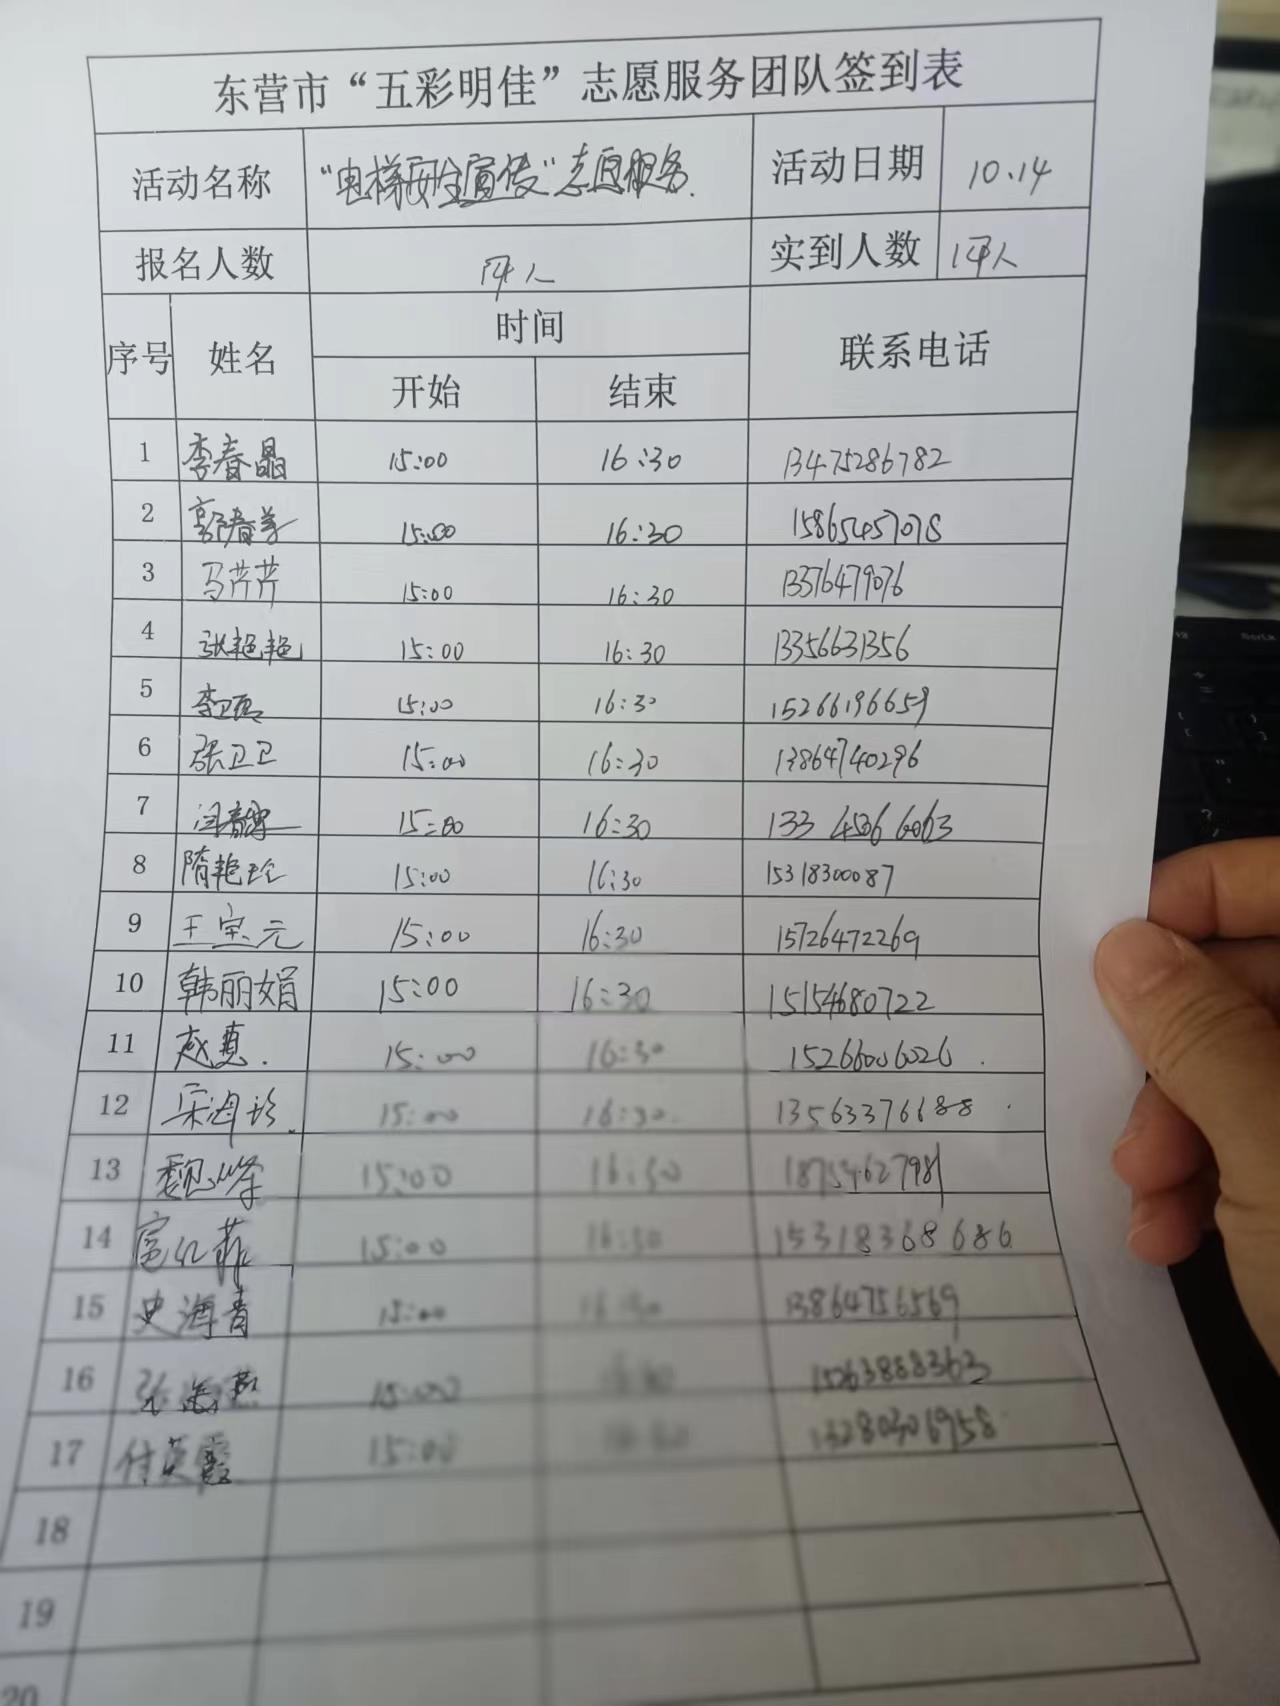 东营市“五彩明佳”志愿服务团队签到表
活动名称 “电梯安全宣传”志愿服务. 活动日期 10.14
报名人数 人 实到人数 人
序号 姓名 时间 联系电话
开始 结束
1 李春晶 15:00 16:30 13475286782
2 郭春芳 15:00 16:30 15865457078
3 马芹芹 15:00 16:30 13376479076
4 张艳艳 15:00 16:30 13356631356
5 15:00 16:30 15266196659
6 张卫卫 15:00 16:30 13864740296
7 15:00 16:30 133 4506 6063
8 隋艳玲 15:00 16:30 15318300087
9 王宝元 15:00 16:30 15726472269
10 韩丽娟 15:00 16:30 15154680722
11 赵真. 15:00 16:30 15266006026.
12 宋海珍. 15:00 16:30. 13563376688.
13 魏峰 15:00 16:30 18754627981
14 15:00 16:30 15318368686
15 史海青 15:00 16:30 13864756569
16 15:00 15263888363
17 付英霞 15:00 13280306958
18
19
20